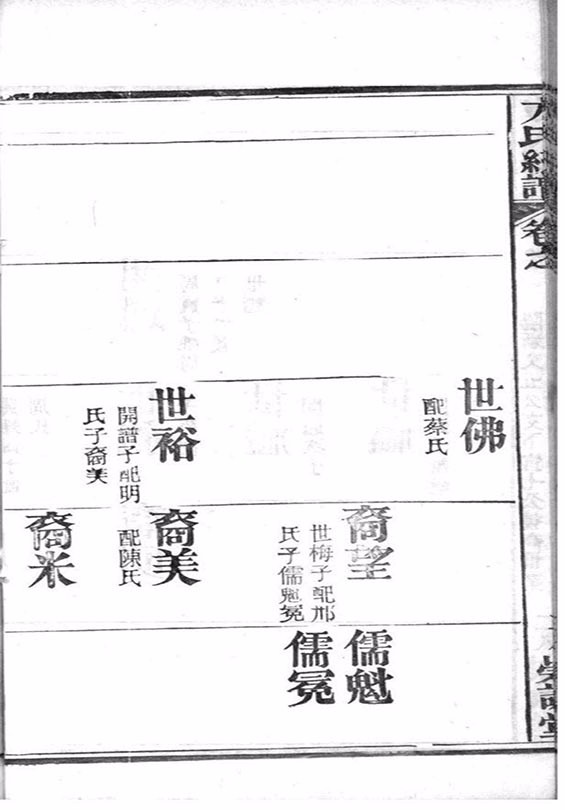 方氏統譜
卷之
世佛
配蔡氏
裔望
世梅子配邢
氏子儒魁冕
儒魁
儒冕
世裕
開譜子配明
氏子裔美
裔美
配陳氏
裔米